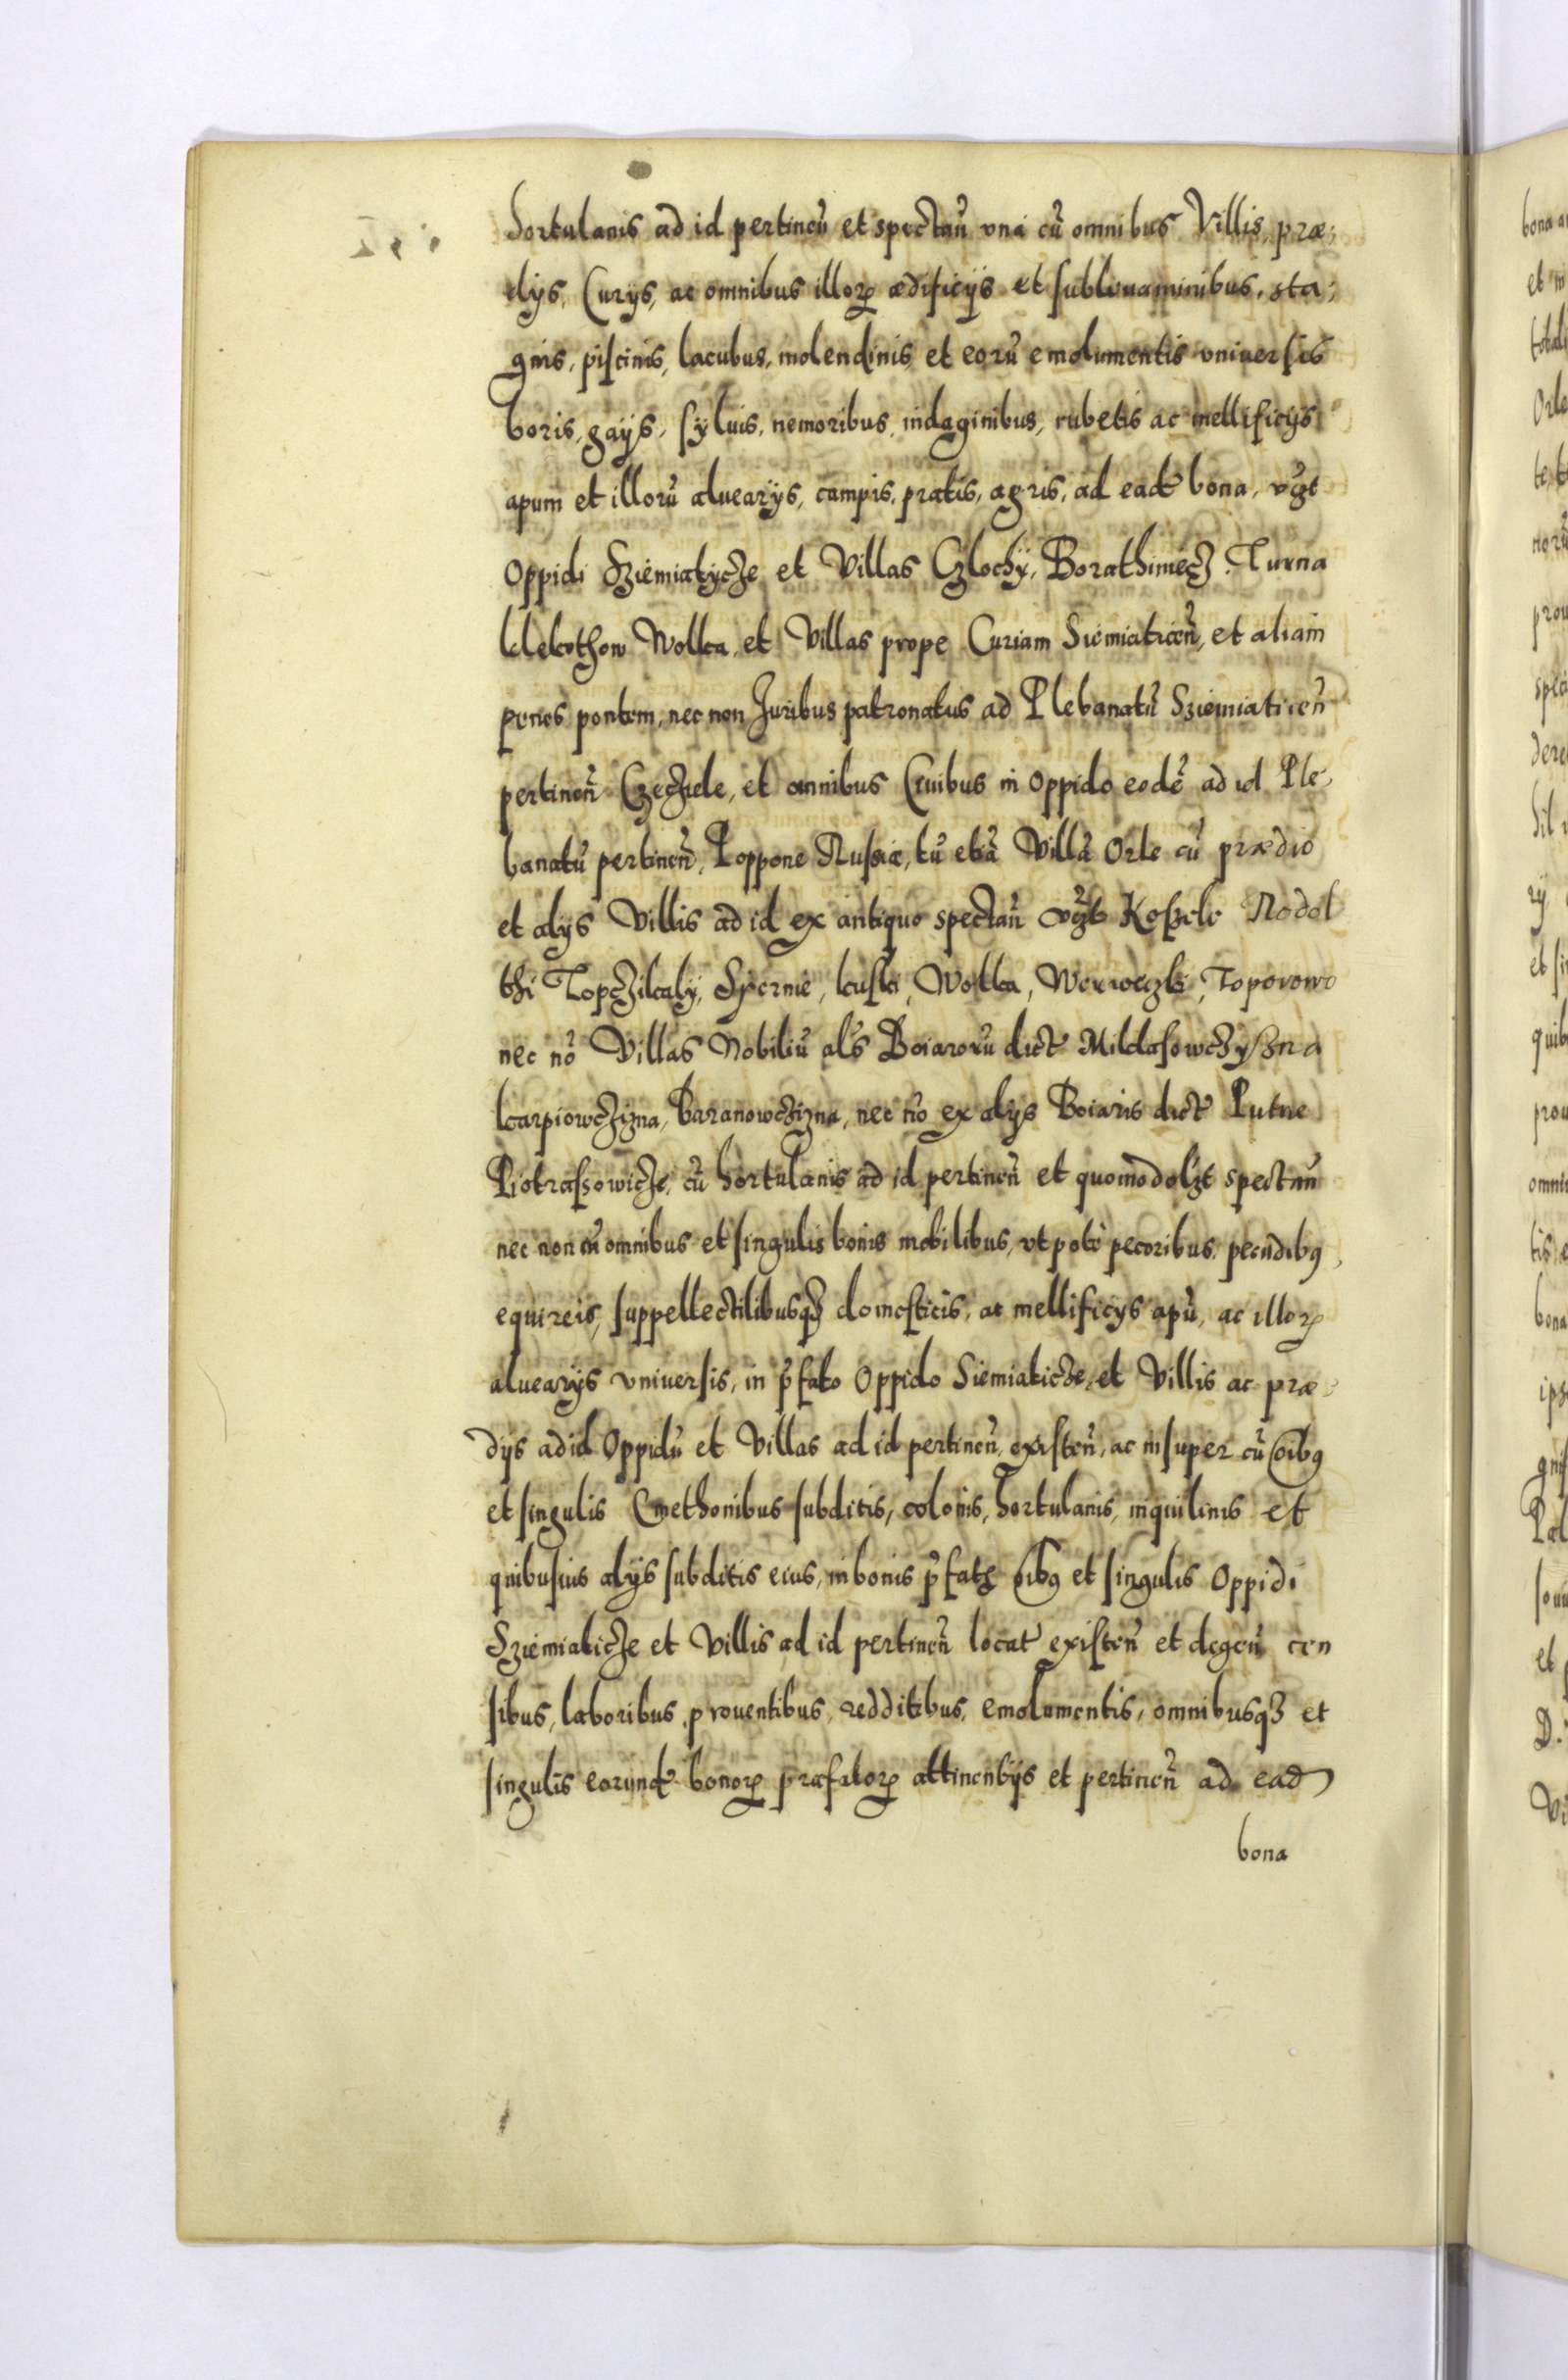 hortulanis ad id pertineñ et spectañ vna cũ omnibus Villis, præ-
dijs, Curijs, ac omnibus illoꝝ ædificijs et subleuaminibus, sta-
gnis, piscinis, lacubus, molendinis et eorũ emolumentis vniuersis
boris, gaijs, syluis, nemoribus, indaginibus, rubetis ac mellificijs
apum et illorũ aluearijs, campis, pratis, agris, ad ead bona, vꝫt
Oppidi Sziemiatycze et Villas Czlochÿ, Borathinecz, Turna
klekothow Wolka, et Villas prope Curiam Siemiaticeñ, et aliam
penes pontem, nec non Juribus patronatus ad Plebanatũ Sziemiaticeñ
pertineñ Czeczele, et omnibus Ciuibus in Oppido eodẽ ad id Ple-
banatũ pertineñ, Poppone Russiæ, tũ etiã Villã Orle cũ prædio
et alijs Villis ad id ex antiquo spectañ vꝫt Koszele Redol
thi Topczikalÿ, Spernie, kuski, Wolka, Werweczki, Toporowo
nec nõ Villas Nobiliũ als Boiarorũ dict Mikłasowczyszna
karpiowczizna, Baranowczizna, nec nõ ex alijs Boiaris dict Putne
Piotrassowicze, cũ hortulanis ad id pertineñ et quomodolꝫt spectañ
nec non cũ omnibus et singulis bonis mobilibus, vtpote pecoribus, pecudibꝰ,
equireis, suppellectilibusqꝫ domesticis, ac mellificijs apũ, ac illoꝝ
aluearijs vniuersis, in p̃fato Oppido Siemiaticze, et Villis ac præ-
dijs ad id Oppidũ et Villas ad id pertineñ, existeñ, ac insuper cũ oĩbꝰ
et singulis Cmethonibus subditis, colonis, hortulanis, inquilinis et
quibusuis alijs subditis eius, in bonis p̃fatꝭ oĩbꝰ et singulis Oppidi
Sziemiaticze et Villis ad id pertineñ locat existeñ et degeñ cen
sibus, laboribus, prouentibus, redditibus, emolumentis, omnibusqꝫ et
singulis eorund bonoꝝ præfatoꝝ attinentijs et pertineñ ad ead
bona